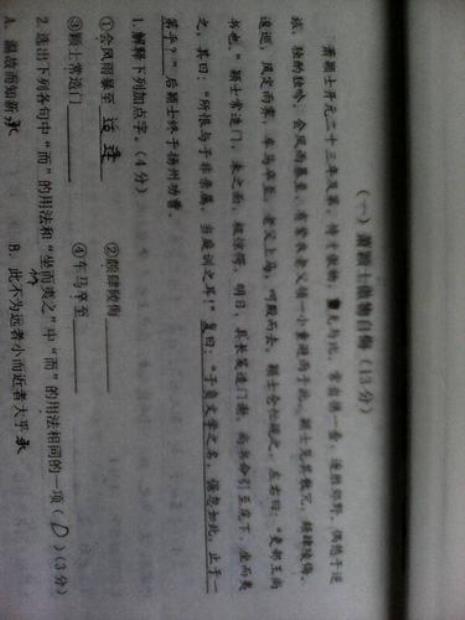 (一) 萧颖士傲物自侮 (13分)
萧颖士开元二十三年及第，恃才傲物，曼无与比。常自携一壶，逐胜郊野。偶憩于逆
旅，独酌独吟。会风雨暴至，有紫衣老父领一小童避雨于此。颖士见其散冗，颇肆陵侮。
逡巡，风定雨霁，车马卒至，老父上马，呵殿而去。颖士仓忙觇之，左右曰：“吏部王尚
书也。”颖士常造门，未之面，极惊愕，明日，具长笺造门谢，尚书命引至庑下，坐而责
之，其曰：“所恨与子非亲属，当庭训之耳！”复曰：“子负文学之名，倨忽如此，止于一
第乎？”后颖士终于扬州功曹。
1.解释下列加点字。(4分)
①会风雨暴至 适逢 ②颇肆陵侮
③颖士常造门 ④车马卒至
2.选出下列各句中“而”的用法和“坐而责之”中“而”的用法相同的一项( D )(3分)
A. 温故而知新 承 B. 此不为远者小而近者大乎 承